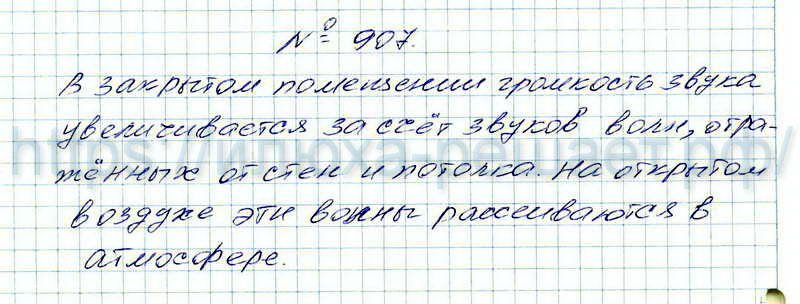 № 907.
В закрытом помещении громкость звука
увеличивается за счёт звуков волн, отра-
жённых от стен и потолка. На открытом
воздухе эти волны рассеиваются в
атмосфере.